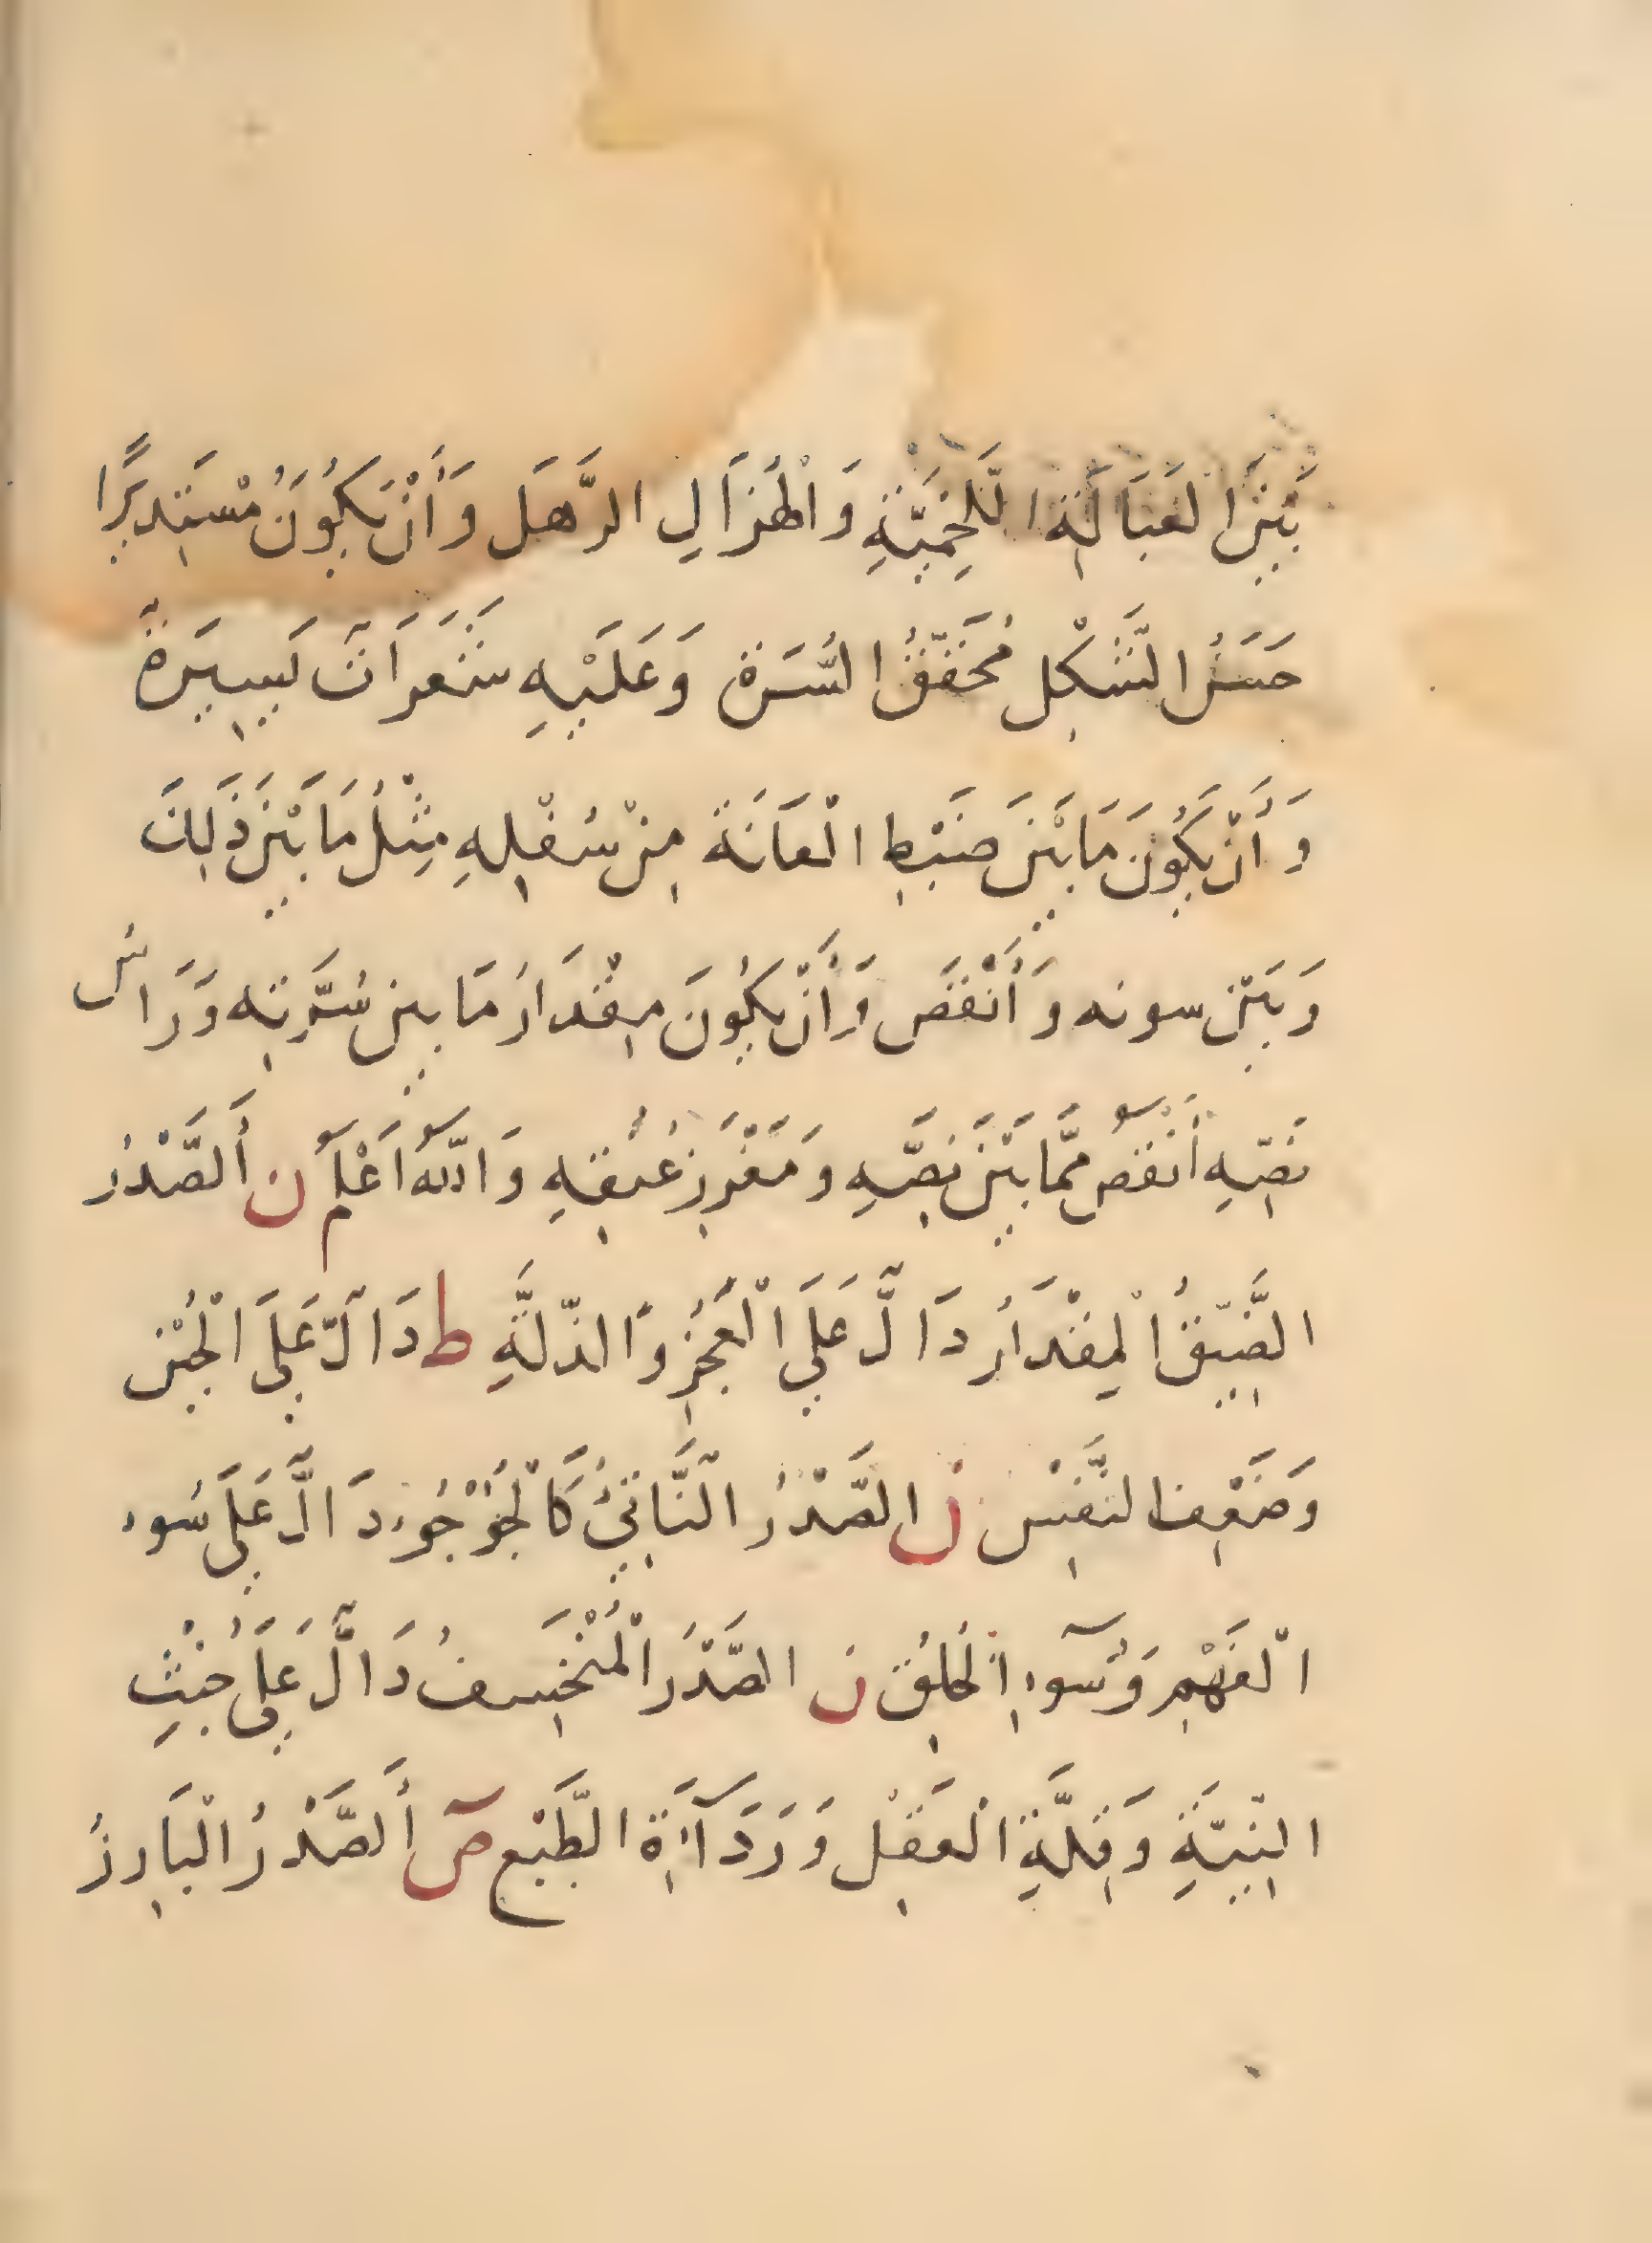 بَيْنَ الْعَبَالَةِ اللَّحْمِيَّةِ وَالْهَزَالِ الرَّهَلِ وَأَنْ يَكُونَ مُسْتَدِيرًا
حَسَنُ الشَّكْلِ مُحَقَّقُ السُّرَة وَعَلَيْهِ شَعَرَاتٌ يَسِيرَةٌ
وَأَنْ يَكُونَ مَا بَيْنَ ضَبْطِ الْعَانَة مِنْ سُفْلِهِ مِثْلُ مَا بَيْنَ ذَلِكَ
وَبَيْنَ سونه وَأَنْقَصَ وَأَنْ يَكُونَ مِقْدَارُ مَا بين سُرَّتِه وَرَاسُ
نَصِّهِ أَنْقَصُ مِمَّا بَيْنَ نَصِّهِ وَمَغْرَزِ عُنُقِهِ وَاللهُ اَعْلَمُ ن أَلصَّدْرُ
الضَّيِّقُ الْمِقْدَارُ دَالٌّ عَلَى الْعَجْزِ وَالذِّلَّةِ ط دَالٌّ عَلَى الْجُبْنِ
وَضَعْفِ النَّفْسِ ن الصَّدْرُ النَّاتِئُ كَالْجُؤْجُؤِ دَالٌّ عَلَى سُوءِ
الْفَهْمِ وَسُوءِ الْخُلُقِ ن الصَّدْرُ الْمُنْخَسِفُ دَالٌّ عَلَى خُبْثِ
النِّيَّةِ وَقِلَّةِ الْعَقْلِ وَرَدَآءَةِ الطَّبْعِ صَ أَلصَّدْرُ الْبَارِزُ